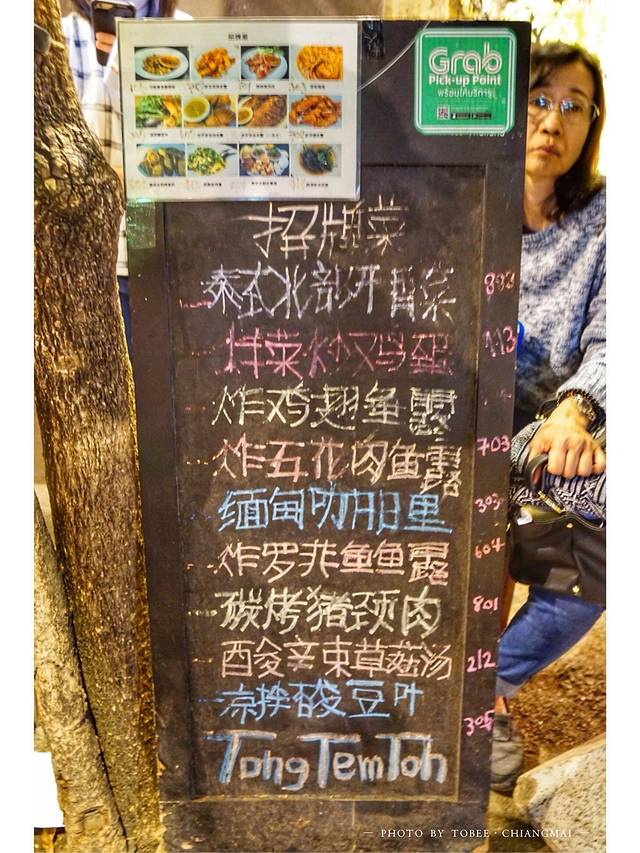 招牌菜
Grab
Pick-up Point
พร้อมให้บริการ
招牌菜
泰式北部开胃菜 803
炸菜炒鸡蛋 113
炸鸡翅鱼露
炸五花肉鱼露 703
缅甸咖喱 303
炸罗非鱼鱼露 604
碳烤猪颈肉 801
酸冬辛束草菇汤 212
凉拌酸豆叶 305
Tong Tem Toh
— PHOTO BY TOBEE · CHIANGMAI —